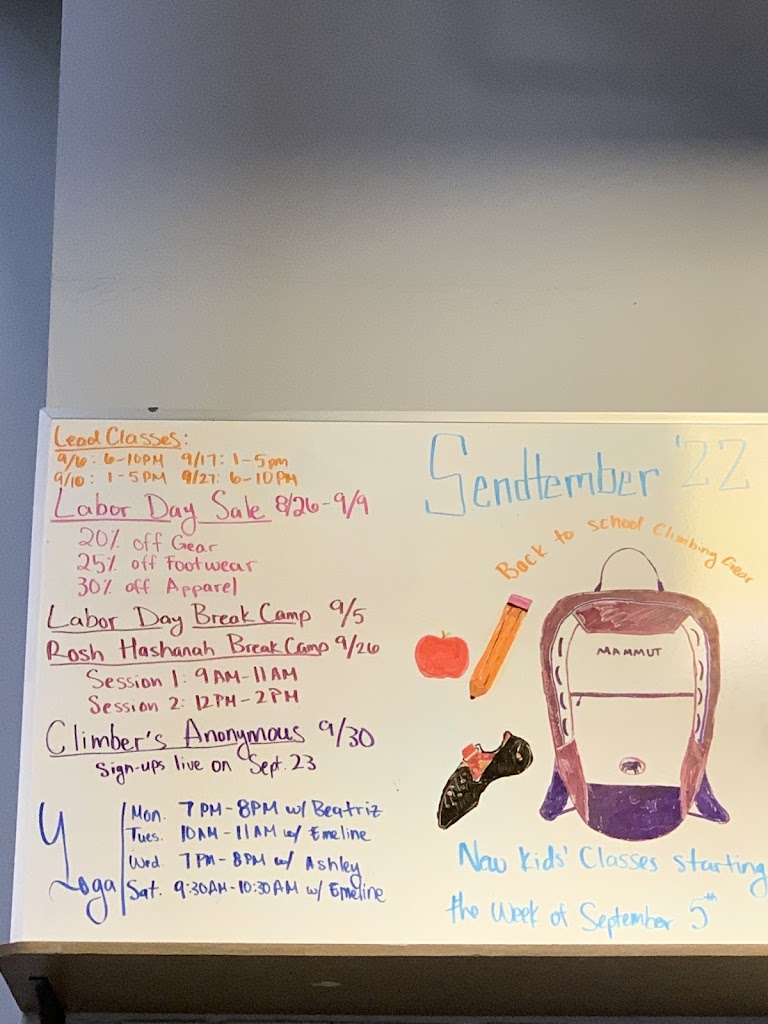 Lead Classes:
9/6: 6-10PM 9/17: 1-5pm
9/10: 1-5PM 9/27: 6-10PM
Labor Day Sale 8/26-9/9
20% off Gear
25% off Footwear
30% off Apparel
Labor Day Break Camp 9/5
Rosh Hashanah Break Camp 9/26
Session 1: 9AM-11AM
Session 2: 12PM-2PM
Climber's Anonymous 9/30
Sign-ups live on Sept. 23
Yoga
Mon. 7PM-8PM w/ Beatriz
Tues. 10AM-11AM w/ Emeline
Wed. 7PM-8PM w/ Ashley
Sat. 9:30AM-10:30AM w/ Emeline
Sendtember '22
Back to school Climbing Gear
MAMMUT
New Kids' Classes starting
the Week of September 5th